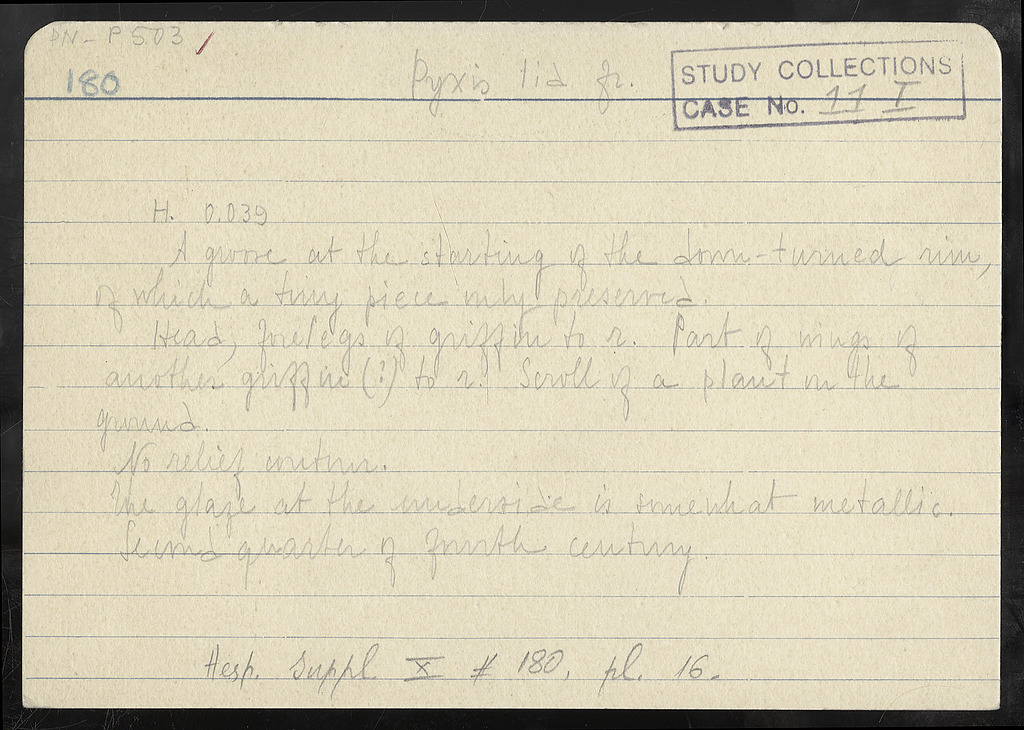 PN-P 503 /
180 Pyxis lid fr.
STUDY COLLECTIONS
CASE No. 11 I
H. 0.039
A groove at the starting of the down-turned rim,
of which a tiny piece only preserved.
Head, forelegs of griffin to r. Part of wings of
another griffin (?) to r. Scroll of a plant on the
ground.
No relief contour.
The glaze at the underside is somewhat metallic.
Second quarter of fourth century.
Hesp. Suppl. X # 180, pl. 16.